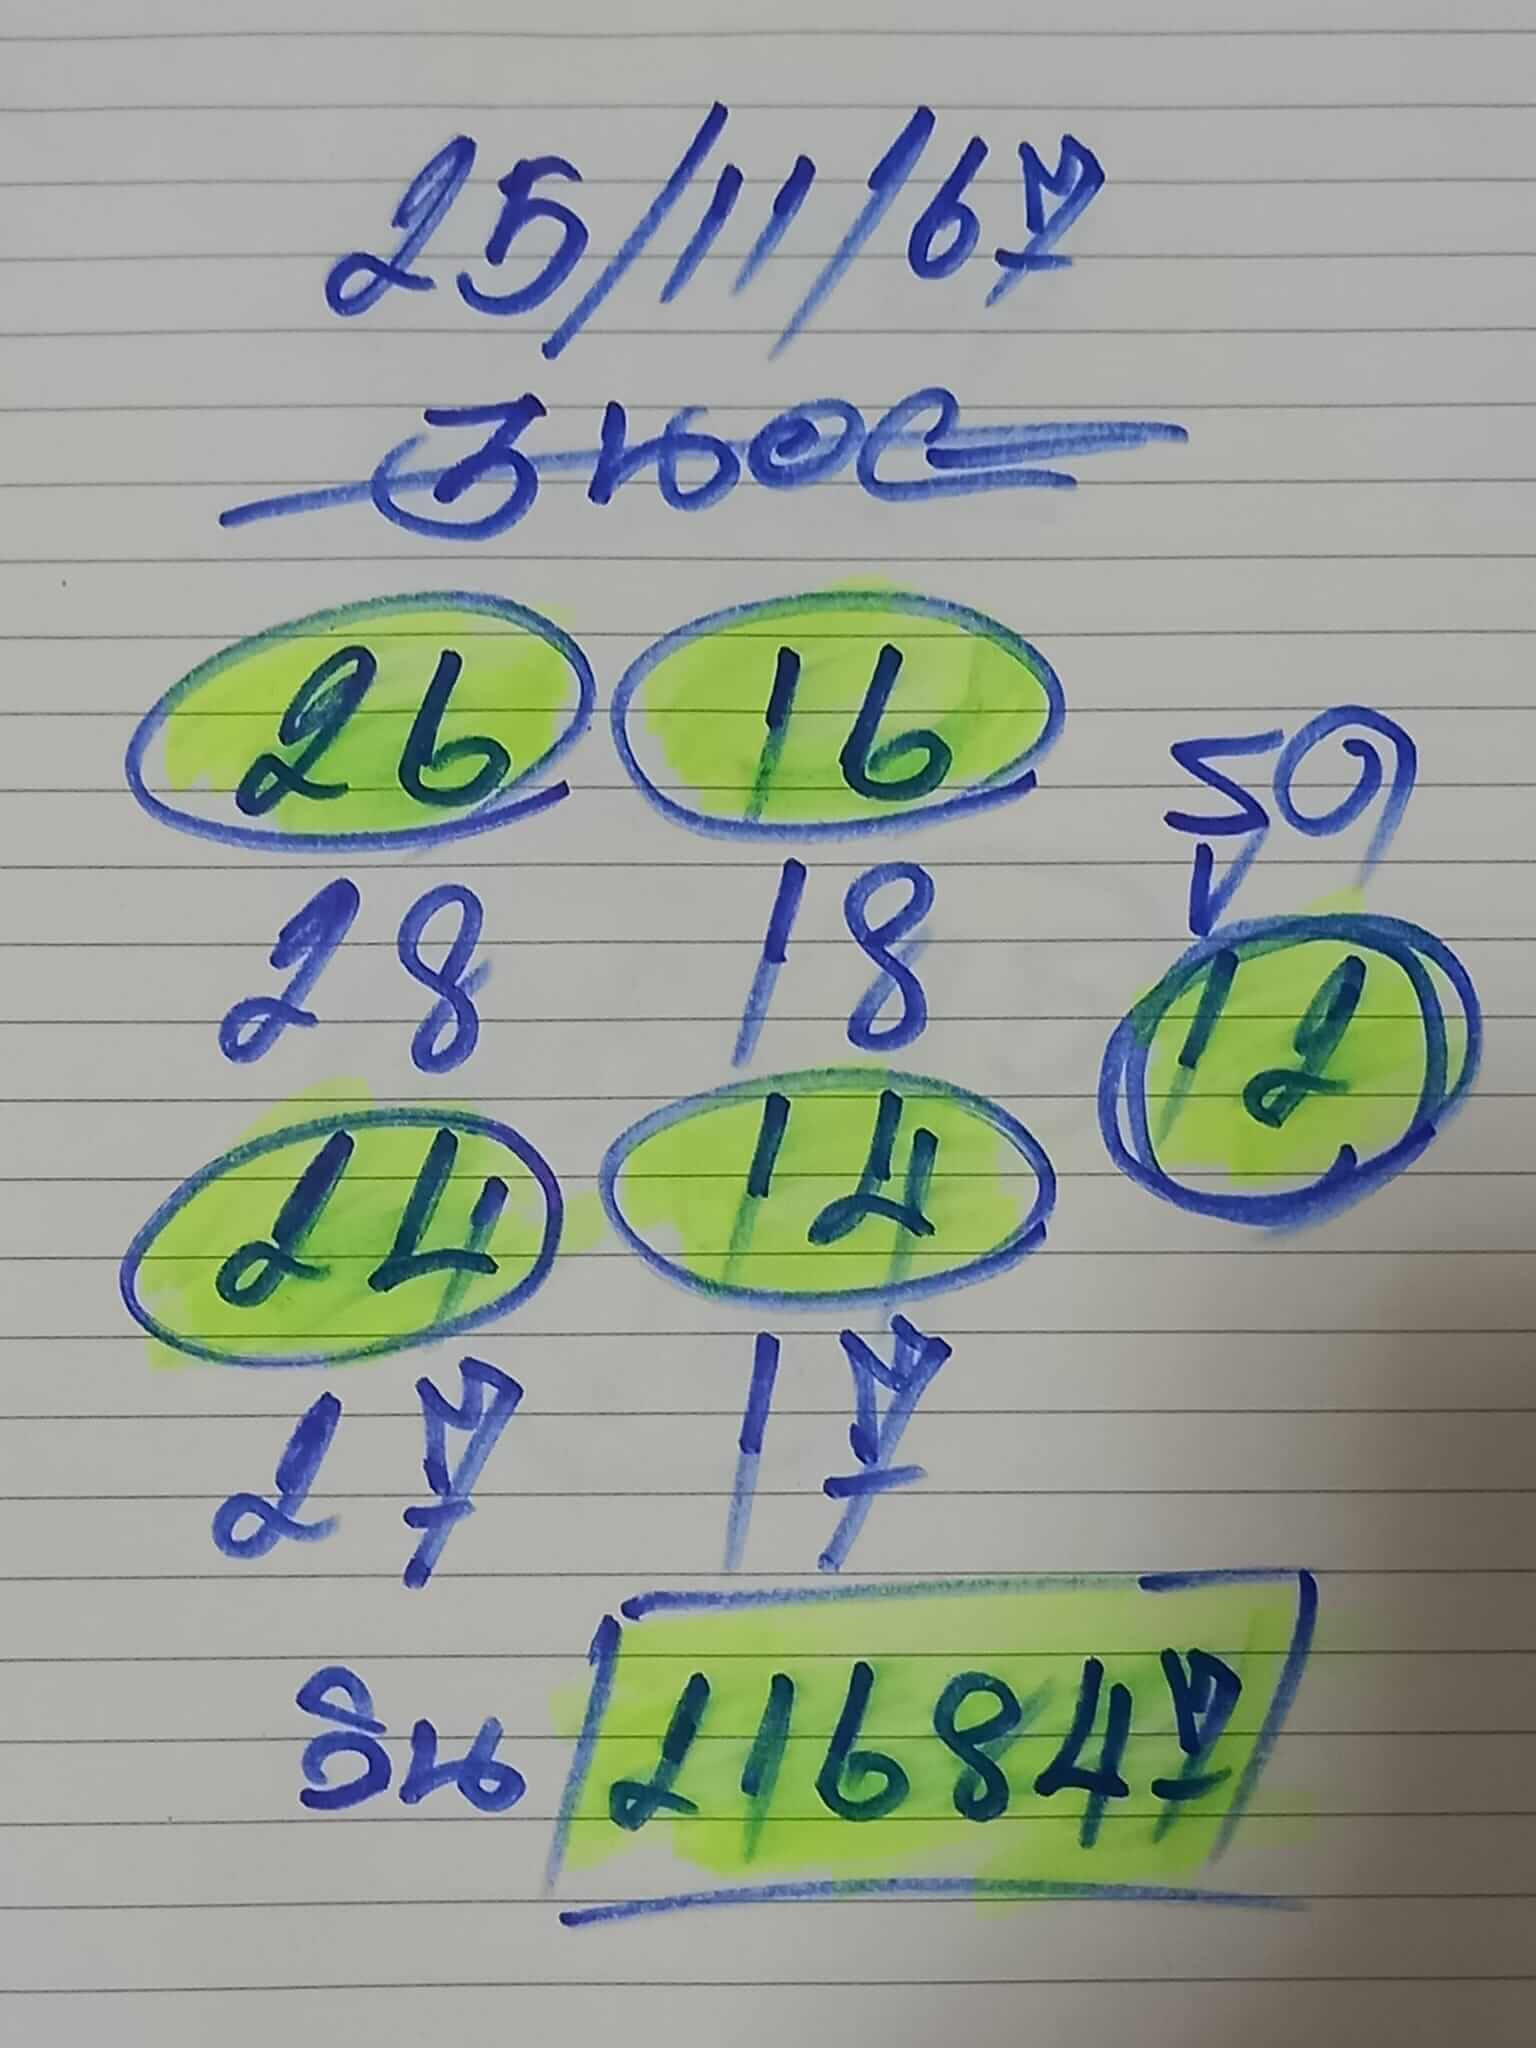 25/11/67
ฮานอย
26 16
รูด
28 18
12
24 14
27 17
วิน 2116847